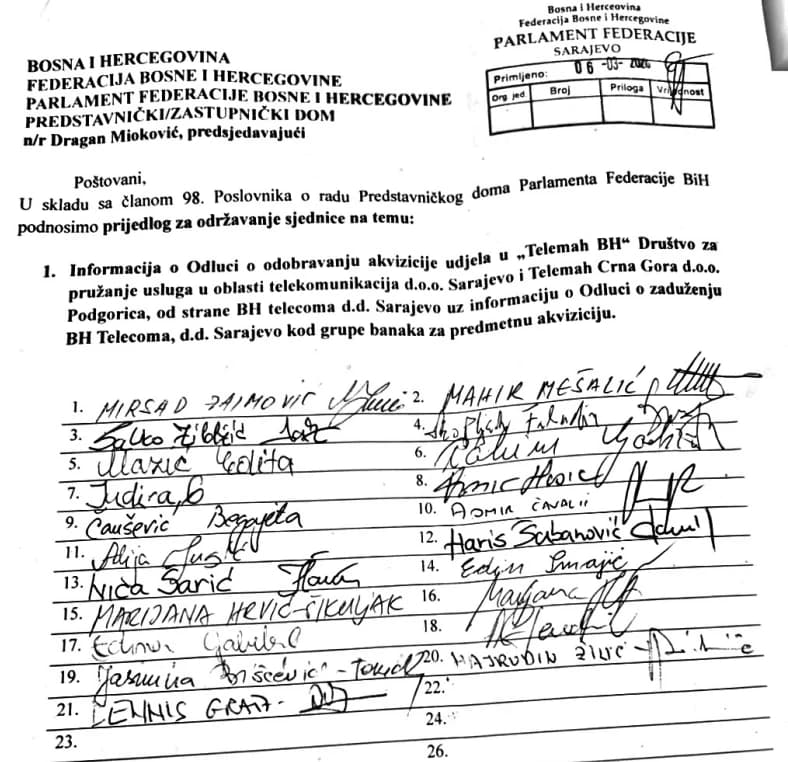 Bosna i Hercegovina
Federacija Bosne i Hercegovine
PARLAMENT FEDERACIJE
SARAJEVO
Primljeno: 06-03-2026
Org jed Broj Priloga Vrijednost
BOSNA I HERCEGOVINA
FEDERACIJA BOSNE I HERCEGOVINE
PARLAMENT FEDERACIJE BOSNE I HERCEGOVINE
PREDSTAVNIČKI/ZASTUPNIČKI DOM
n/r Dragan Mioković, predsjedavajući
Poštovani,
U skladu sa članom 98. Poslovnika o radu Predstavničkog doma Parlamenta Federacije BiH
podnosimo prijedlog za održavanje sjednice na temu:
1. Informacija o Odluci o odobravanju akvizicije udjela u „Telemah BH“ Društvo za
pružanje usluga u oblasti telekomunikacija d.o.o. Sarajevo i Telemah Crna Gora d.o.o.
Podgorica, od strane BH telecoma d.d. Sarajevo uz informaciju o Odluci o zaduženju
BH Telecoma, d.d. Sarajevo kod grupe banaka za predmetnu akviziciju.
1. MIRSAD ZAIMOVIĆ 2. MAHIR MEŠALIĆ
3. 4.
5. 6.
7. 8.
9. Čaušević Begajeta 10. ADMIR ČAVALIĆ
11. Alija 12. Haris Šabanović
13. Ivica Šarić 14. Edin Smajić
15. MARIJANA 16. Marijana
17. 18.
19. Jasmina 20. HAJRUDIN
21. DENNIS GRATZ 22.
23. 24.
26.